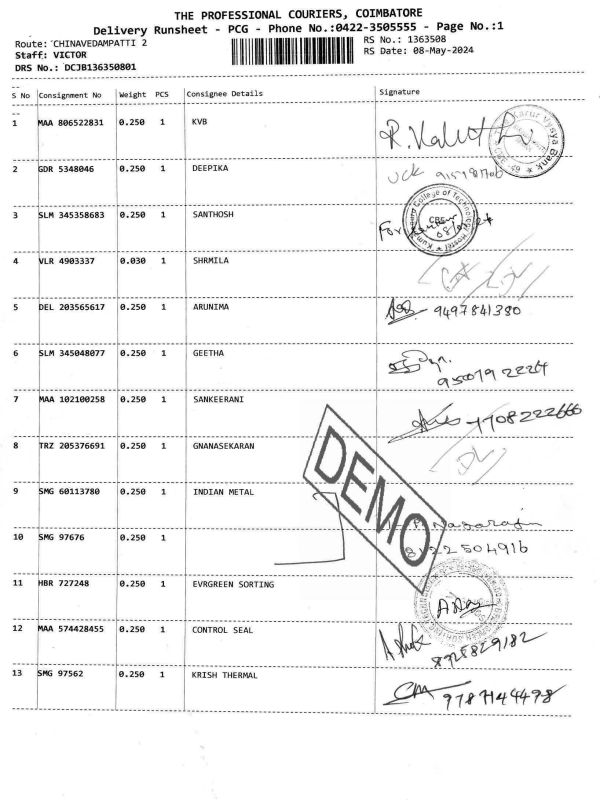 THE PROFESSIONAL COURIERS, COIMBATORE
Delivery Runsheet - PCG - Phone No.:0422-3505555 - Page No.:1
Route: CHINAVEDAMPATTI 2
RS No.: 1363508
Staff: VICTOR
RS Date: 08-May-2024
DRS No.: DCJB136350801
S No Consignment No Weight PCS Consignee Details Signature
1 MAA 806522831 0.250 1 KVB
2 GDR 5348046 0.250 1 DEEPIKA
3 SLM 345358683 0.250 1 SANTHOSH For
4 VLR 4903337 0.030 1 SHRMILA
5 DEL 203565617 0.250 1 ARUNIMA 9497841380
6 SLM 345048077 0.250 1 GEETHA
950792 2224
7 MAA 102100258 0.250 1 SANKEERANI 7708222666
8 TRZ 205376691 0.250 1 GNANASEKARAN DL
9 SMG 60113780 0.250 1 INDIAN METAL
DEMO
Nagarajan
10 SMG 97676 0.250 1
11 HBR 727248 0.250 1 EVRGREEN SORTING
12 MAA 574428455 0.250 1 CONTROL SEAL
13 SMG 97562 0.250 1 KRISH THERMAL